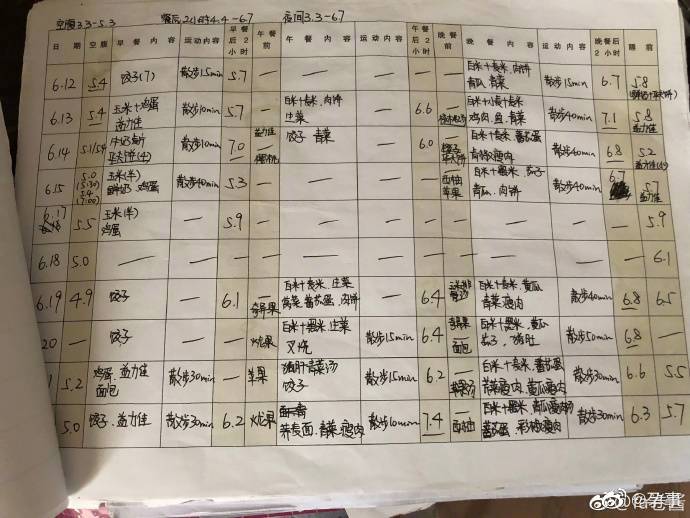 空腹3.3-5.3 餐后2小时4.4-6.7 夜间3.3-6.7
日期 空腹 早餐内容 运动内容 早餐后2小时 午餐前 午餐内容 运动内容 午餐后2小时 晚餐前 晚餐内容 运动内容 晚餐后2小时 睡前
6.12 5.4 饺子(7) 散步15min 5.7 — — — — — 白米+糙米、肉饼 散步15min 6.7 5.8
青瓜 青菜
6.13 5.4 玉米+鸡蛋 散步10min 5.7 — 白米+糙米、肉饼 — 6.6 白米+小米+糙米 散步40min 7.1 5.8
益力佳 生菜 鸡肉、鱼、青菜 益力佳
6.14 5.1/5.4 散步10min 7.0 益力佳 饺子 青菜 — 6.0 白米+糙米、番茄蛋 散步60min 6.8 5.2
瘦肉
6.15 5.0 玉米(半) 散步40min 5.3 — — — — 西柚 白米+黑米、茄子 — 6.7 5.7
(5:30) 鸡蛋 苹果 青瓜、肉饼 益力佳
5.4
(7:00)
6.17 5.5 玉米(半) — 5.9 — — — — — — — — 5.9
鸡蛋
6.18 5.0 — — — — — — — — — — — 6.1
6.19 4.9 饺子 — 6.1 — 白米+糙米、生菜 — 6.4 白米+糙米、黄瓜 散步40min 6.8 6.5
奇异果 番茄蛋、肉饼 青菜瘦肉
20 — 饺子 — — 火龙果 白米+黑米、生菜 散步15min 6.4 奇异果 白米+黑米、黄瓜 散步50min 6.8 —
叉烧 面包 茄子、猪肚
5.2 鸡蛋、益力佳 散步30min — 苹果 猪肝青菜汤 散步15min 6.2 — 白米+糙米、番茄蛋 散步30min 6.6 5.5
面包 饺子 苹果汤 瘦肉、黄瓜瘦肉
5.0 饺子、益力佳 散步30min 6.2 火龙果 荞麦面、青菜、瘦肉 散步10min 7.4 — 白米+糙米、青瓜瘦肉 散步30min 6.3 5.7
西柚 番茄蛋、彩椒瘦肉